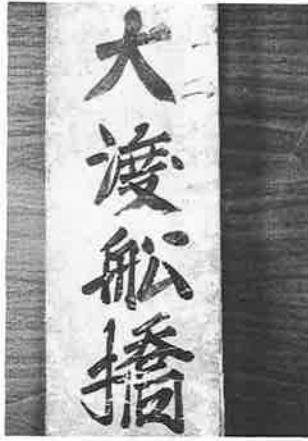 大渡舩橋